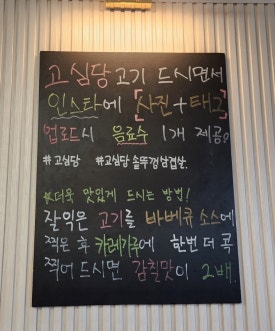 고심당 고기 드시면서
인스타에 [사진+태그]
업로드시 음료수 1개 제공?
#고심당 #고심당솥뚜껑삼겹살.
#더욱 맛있게 드시는 방법!
잘익은 고기를 바베큐 소스에
찍은 후 카레가루에 한번 더 콕
찍어 드시면 감칠맛이 2배.